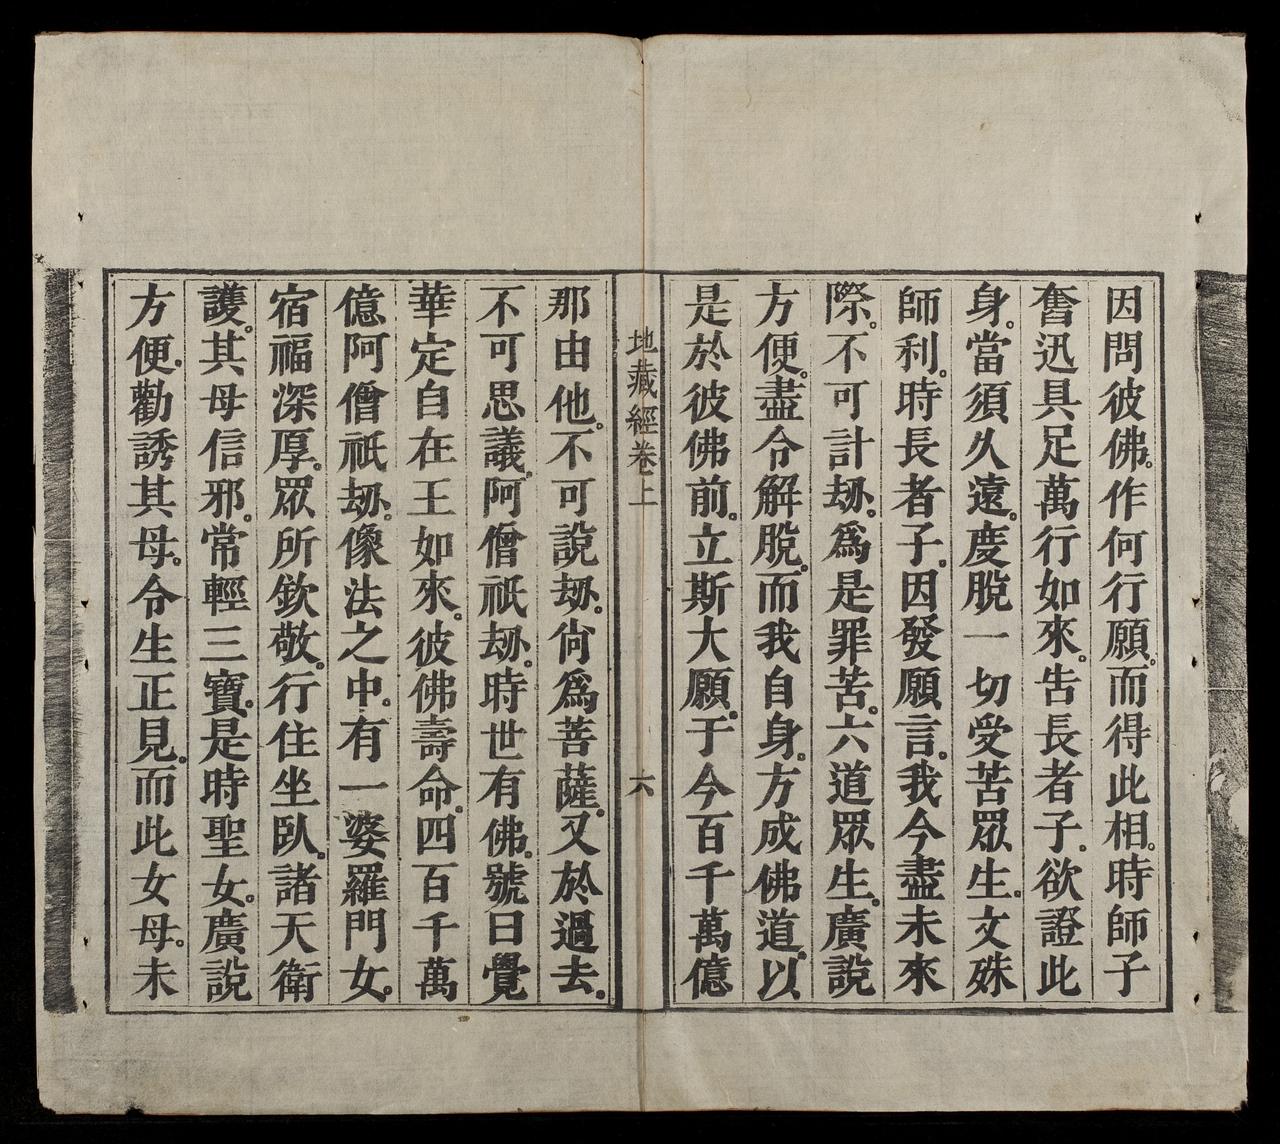 因問彼佛。作何行願。而得此相。時師子
奮迅具足萬行如來。告長者子。欲證此
身。當須久遠。度脫一切受苦眾生。文殊
師利。時長者子。因發願言。我今盡未來
際。不可計劫。為是罪苦。六道眾生。廣說
方便。盡令解脫。而我自身。方成佛道。以
是於彼佛前。立斯大願。于今百千萬億
地藏經卷上
六
那由他。不可說劫。尚為菩薩。又於過去。
不可思議。阿僧祇劫。時世有佛。號曰覺
華定自在王如來。彼佛壽命。四百千萬
億阿僧祇劫。像法之中。有一婆羅門女。
宿福深厚。眾所欽敬。行住坐臥。諸天衛
護。其母信邪。常輕三寶。是時聖女。廣說
方便。勸誘其母。令生正見。而此女母。未